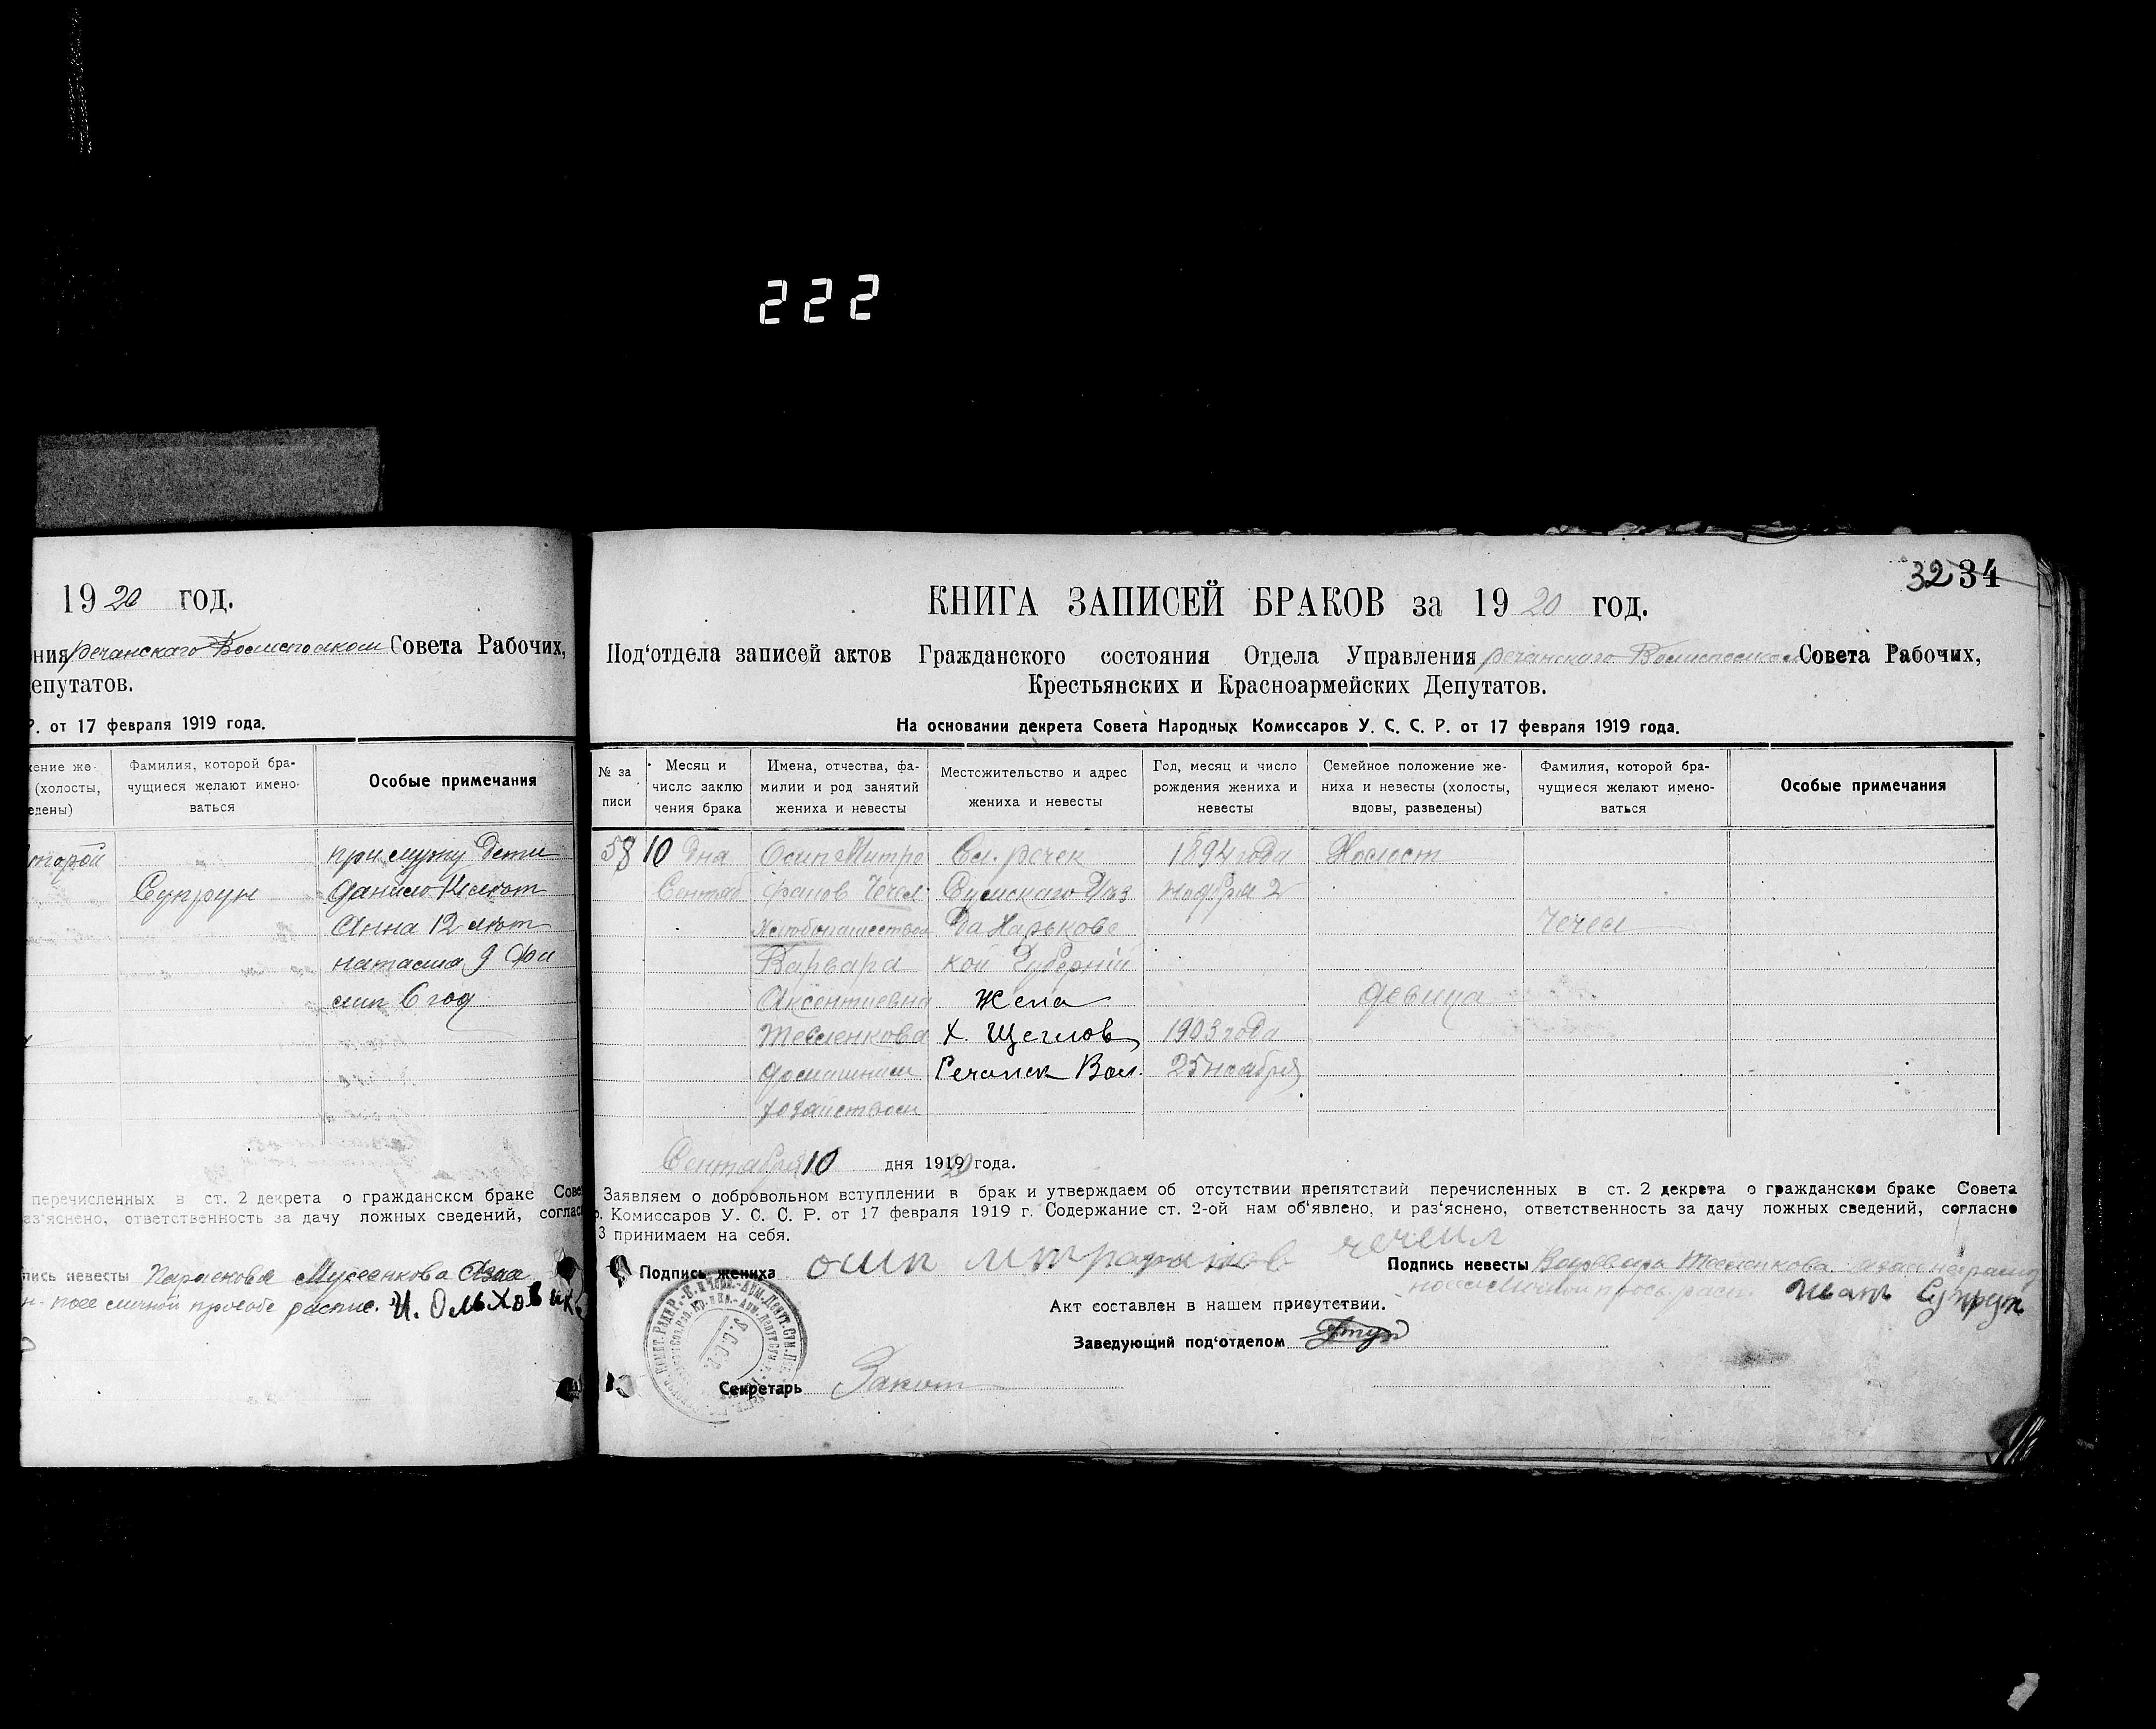 222
1920 год.
ния речанскаго Волисполком Совета Рабочих,
епутатов.
Р. от 17 февраля 1919 года.
жение же- (холосты, едены)
Фамилия, которой бра-
чущиеся желают имено-
ваться
Особые примечания
второй
Супрун
при мужу дети
Данило
Анна 12 лет
наташа 9
6 год
перечисленных в ст. 2 декрета о гражданском браке Сове
аз'яснено, ответственность за дачу ложных сведений, соглас
пись невесты Параскова Мусеенкова
личной прозобе распис. И. Ольховик
3234
КНИГА ЗАПИСЕЙ БРАКОВ за 1920 год.
Под'отдела записей актов Гражданского состояния Отдела Управления речанскаго Волисполком Совета Рабочих,
Крестьянских и Красноармейских Депутатов.
На основании декрета Совета Народных Комиссаров У. С. С. Р. от 17 февраля 1919 года.
№ за
писи
Месяц и
число заклю
чения брака
Имена, отчества, фа-
милии и род занятий
жениха и невесты
Местожительство и адрес
жениха и невесты
Год, месяц и число
рождения жениха и
невесты
Семейное положение же-
ниха и невесты (холосты,
вдовы, разведены)
Фамилия, которой бра-
чущиеся желают имено-
ваться
Особые примечания
58
10 дня
Сентяб
Осип Митро
фанов Чечел
Хлебопашеством
Варвара
Аксентиевна
Тесленкова
домашним
хозайством
Сл. речек
Сумскаго Уез
да Харьковс
кой Губернии
Жена
х. Щеглов
Речанск Вол.
1894 года
ноября 2
1903 года
25 ноября
Холост
девица
Чечел
Сентября 10 дня 1920 года.
Заявляем о добровольном вступлении в брак и утверждаем об отсутствии препятствий перечисленных в ст. 2 декрета о гражданском браке Совета
. Комиссаров У. С. С. Р. от 17 февраля 1919 г. Содержание ст. 2-ой нам об'явлено, и раз'яснено, ответственность за дачу ложных сведений, согласно
3 принимаем на себя.
Подпись жениха осип митрофанов чечил
Подпись невесты Варвара Тесленкова
личной прозь расп. Иван Супрун
Акт составлен в нашем присутствии.
Заведующий под'отделом
Секретарь